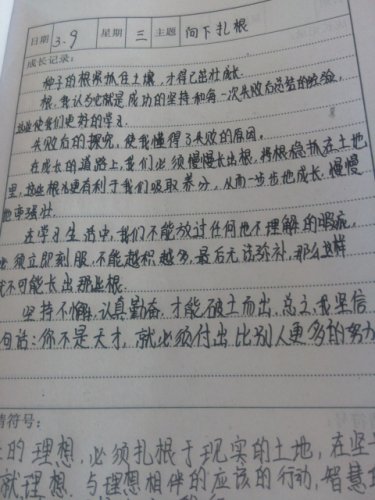 日期 3.9 星期 三 主题 向下扎根
成长记录:
种子的根紧抓住土壤,才得已茁壮成长.
根,我认为它就是成功的坚持和每一次失败后总结的经验,
这些使我们更好的学习.
失败后的探究,使我懂得了失败的原因.
在成长的道路上,我们必须慢慢长出根,将根稳抓在土地
里,这些根为更有利于我们吸取养分,从而一步步地成长.慢慢
地变强壮.
在学习生活中,我们不能放过任何他不理解的瑕疵,
必须立即刻服,不能越积越多,最后无法弥补,那么这样
就不可能长出那些根.
坚持不懈,认真勤奋,才能破土而出,总之,我坚信
句话:你不是天才,就必须付出比别人更多的努力
情符号:
的理想,必须扎根于现实的土地,在坚
就理想.与理想相伴的应该的行动,智慧